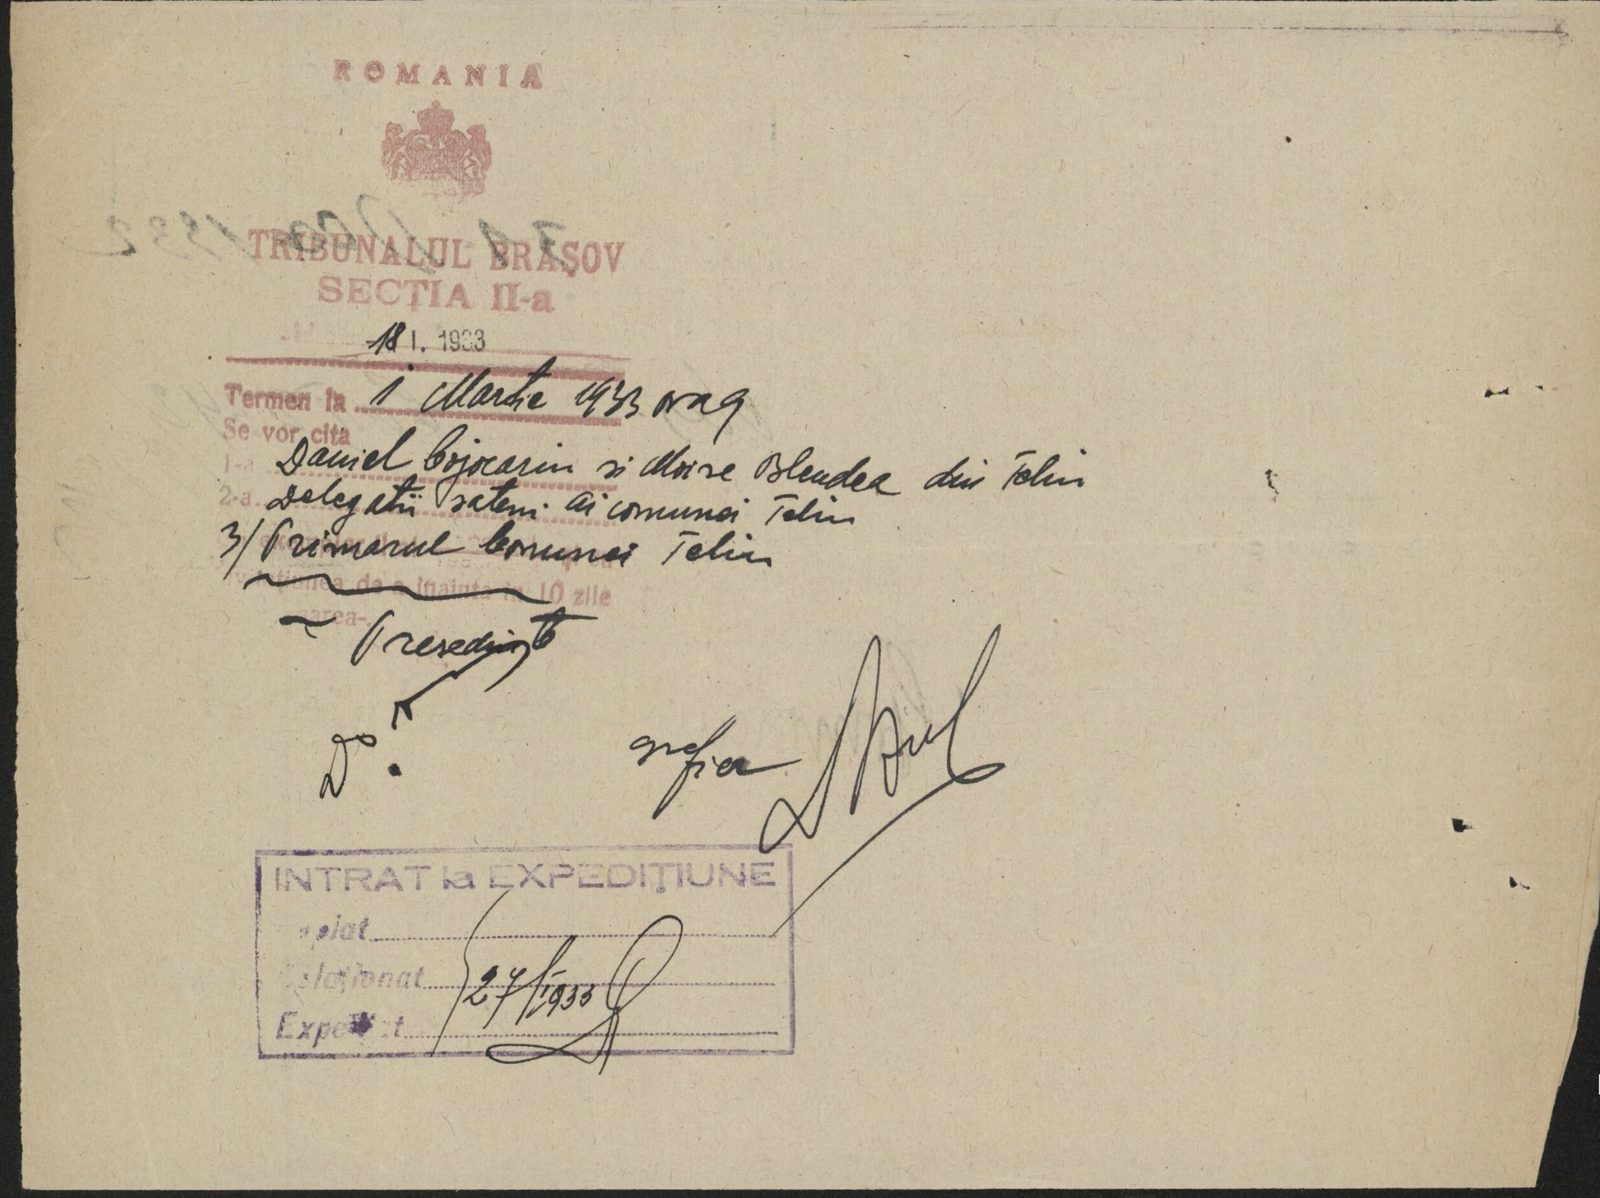 ROMANIA
TRIBUNALUL BRAŞOV
SECŢIA II-a
18 I. 1933
Termen la 1 Martie 1933 ora 9
Se vor cita
1-a Daniel Cojocariu si Moise Blendea din Teliu
2-a Delegatii sateni ai comunei Teliu
3/ Primarul Comunei Teliu
de a înainta în 10 zile
Presedinte
Do.
grefier
INTRAT la EXPEDIŢIUNE
27/I 1933